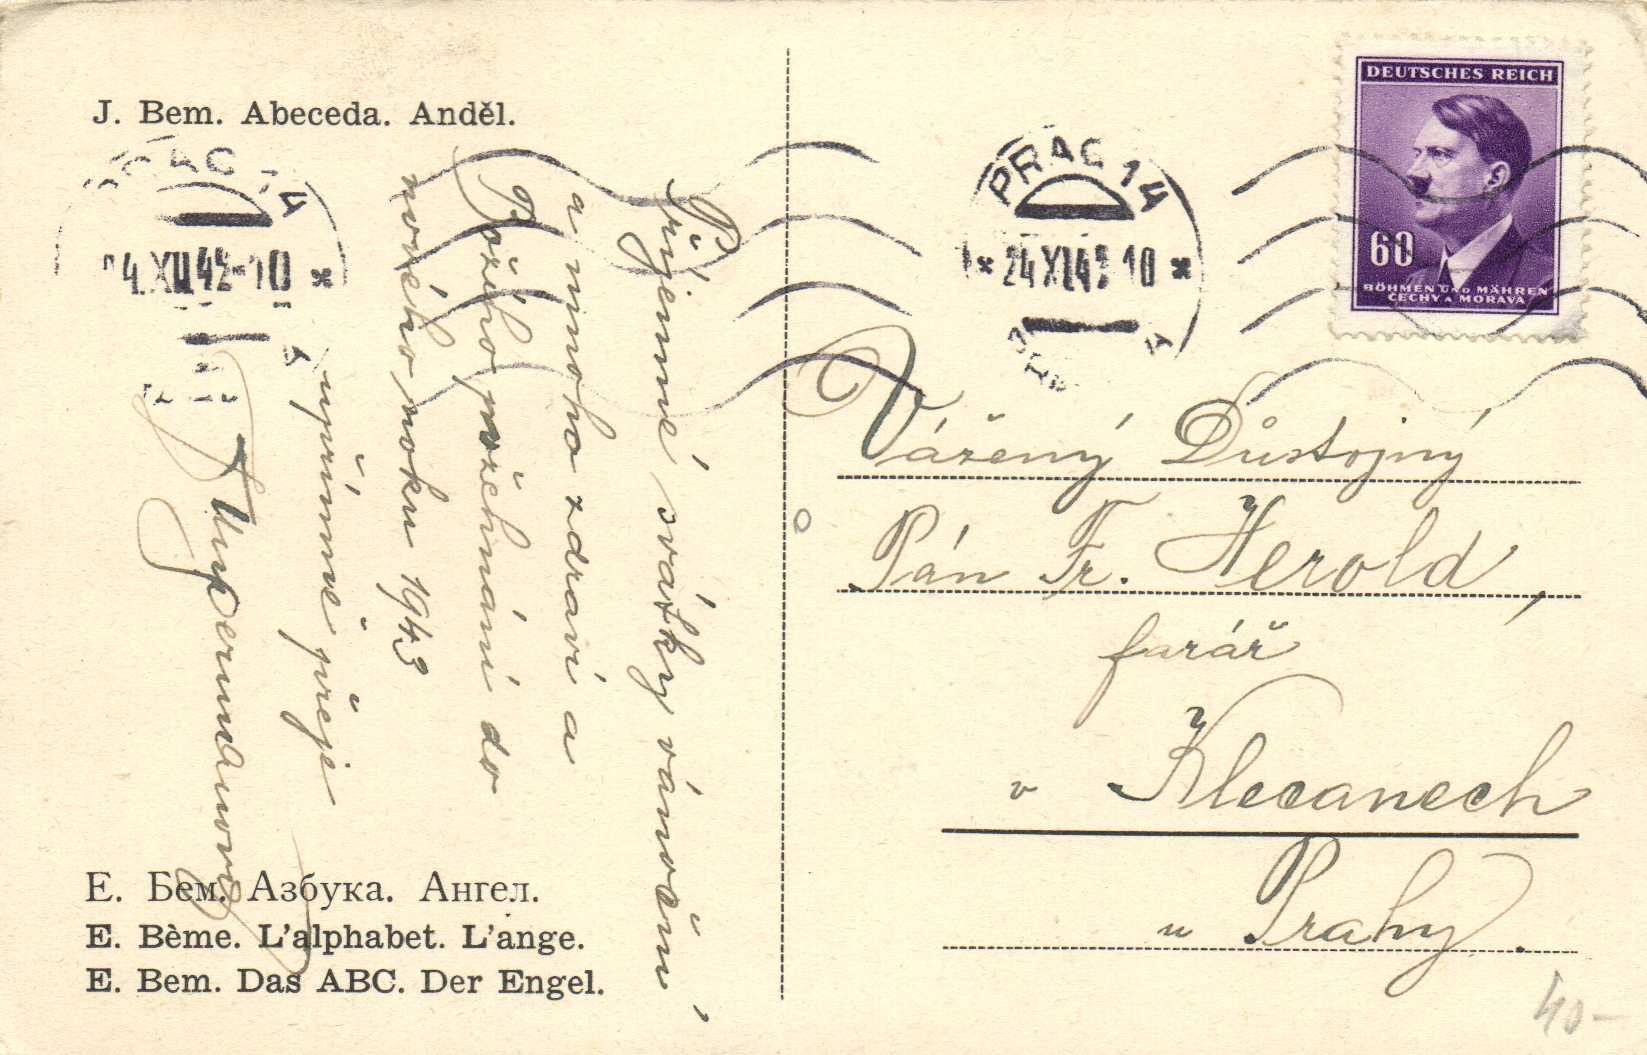 J. Bem. Abeceda. Anděl.
PRAG 14
4.XII 42-10 *
Příjemné svátky vánoční
a mnoho zdraví a
Božího požehnání do
nového roku 1943
upřímně přeje
E. Бем. Азбука. Ангел.
E. Bème. L'alphabet. L'ange.
E. Bem. Das ABC. Der Engel.
PRAG 14
* 24 XII 42 10 *
DEUTSCHES REICH
60
BÖHMEN UND MÄHREN
ČECHY A MORAVA
Vážený Důstojný
Pán Fr. Herold,
farář
v Klecanech
u Prahy.
40-